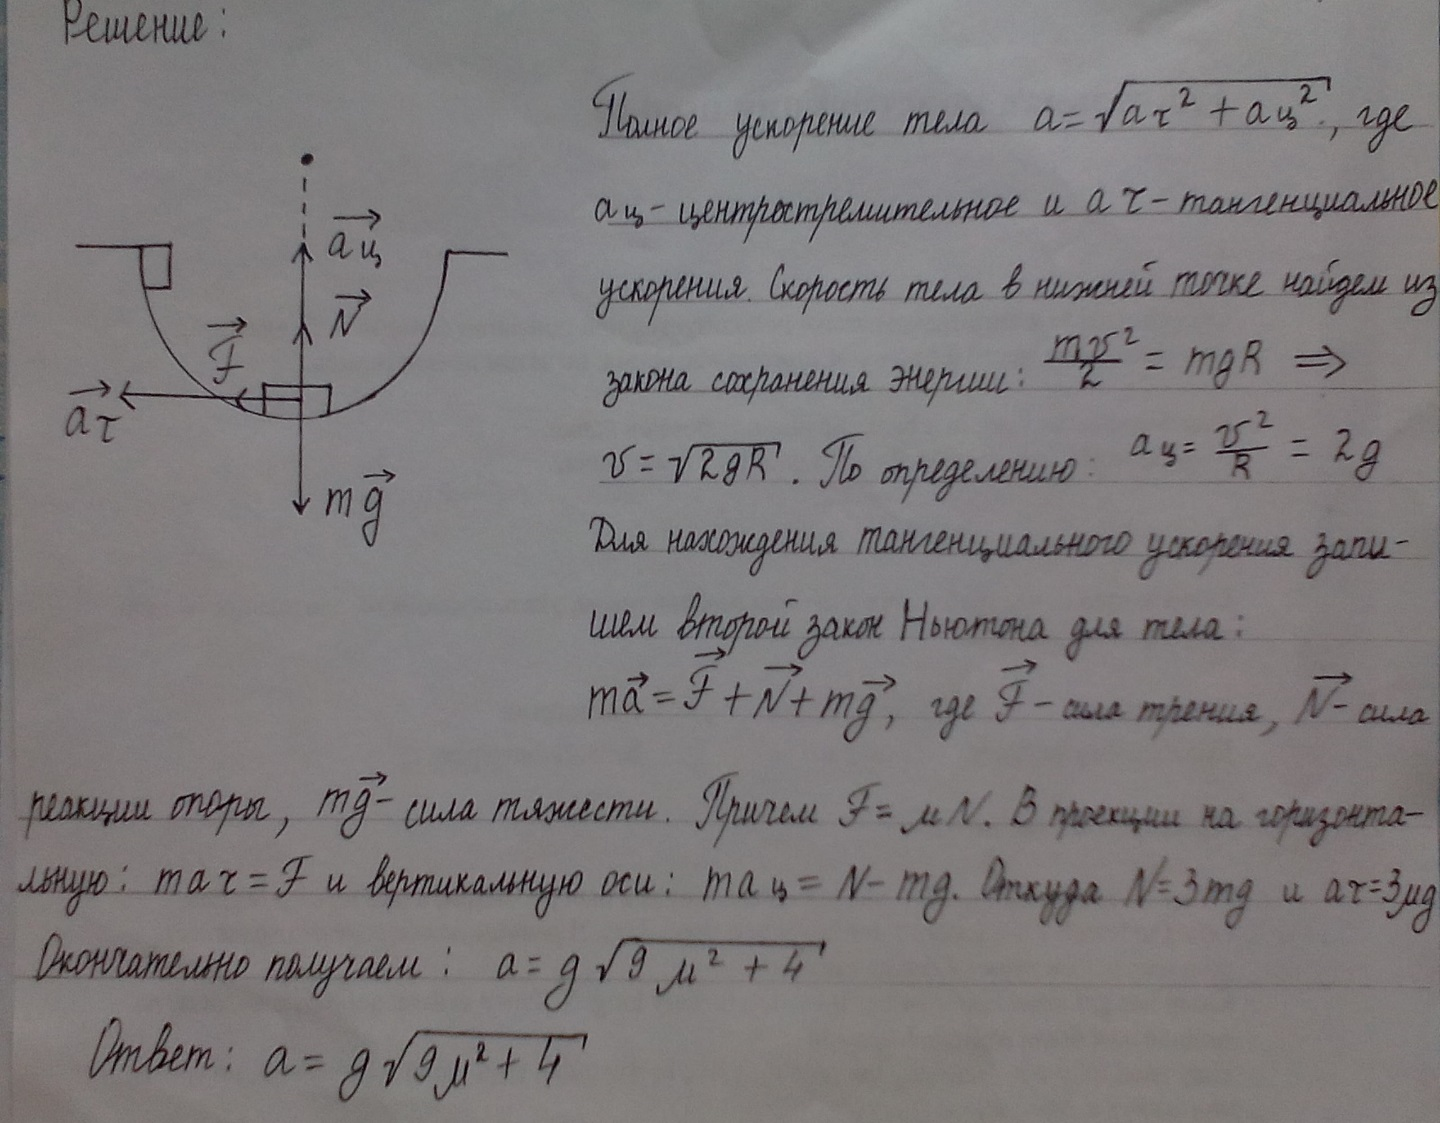 Решение:
Полное ускорение тела a=√aτ²+aц², где
aц- центростремительное и aτ- тангенциальное
ускорения. Скорость тела в нижней точке найдем из
закона сохранения энергии: mv²/2 = mgR ⇒
v=√2gR. По определению: aц= v²/R = 2g
Для нахождения тангенциального ускорения запи-
шем второй закон Ньютона для тела:
ma⃗=F⃗+N⃗+mg⃗, где F⃗- сила трения, N⃗- сила
реакции опоры, mg⃗- сила тяжести. Причем F=μN. В проекции на горизонта-
льную: maτ=F и вертикальную оси: maц= N-mg. Откуда N=3mg и aτ=3μg
Окончательно получаем: a=g√9μ²+4
Ответ: a=g√9μ²+4
a⃗ц
N⃗
F⃗
a⃗τ
mg⃗